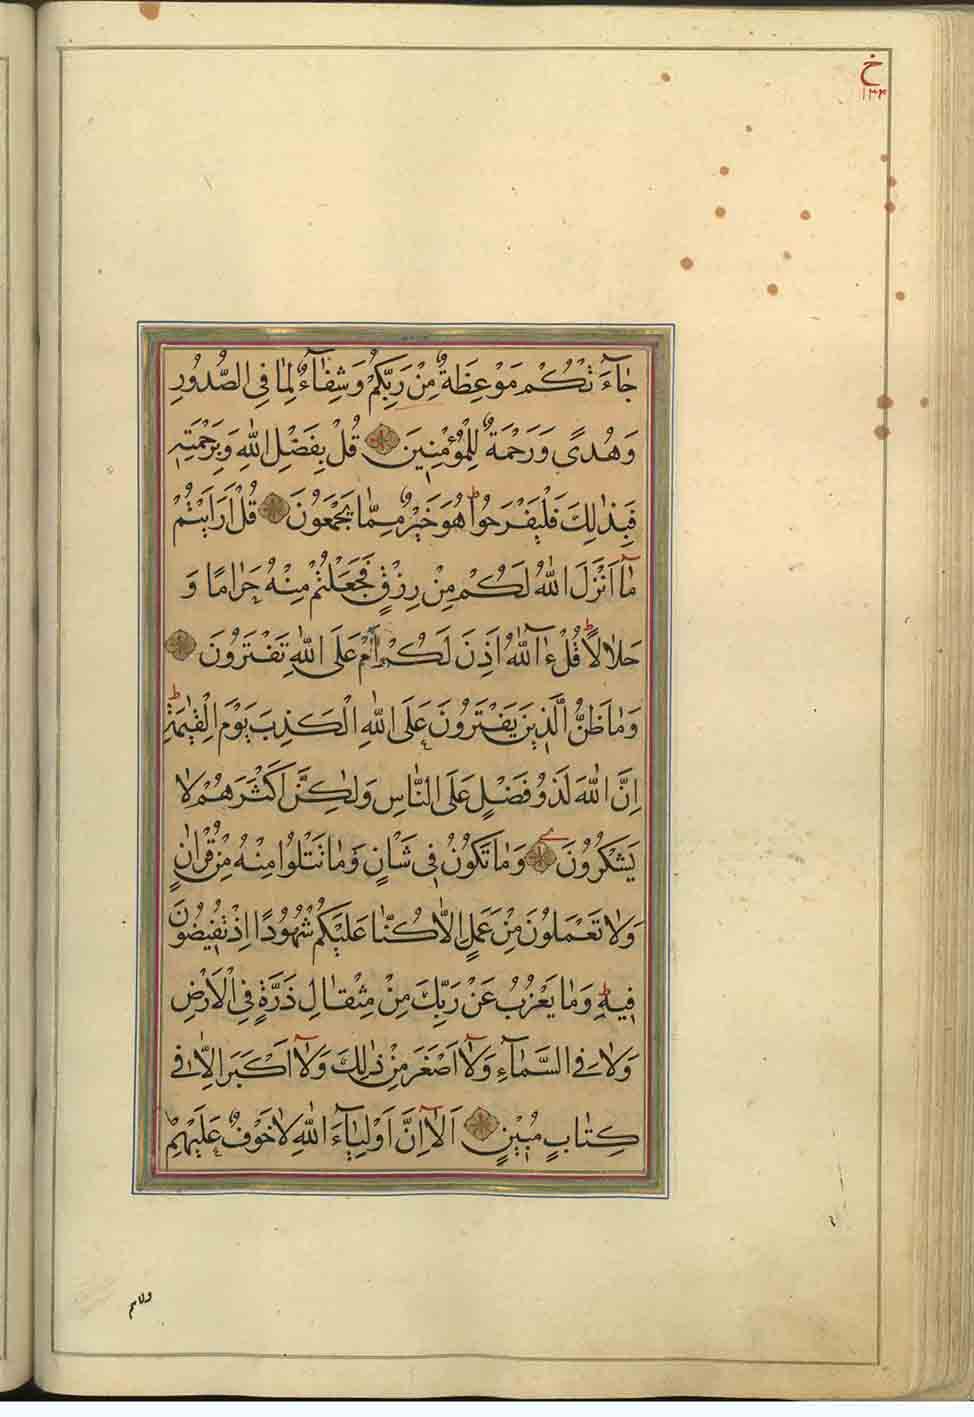 خ
١٣٣
جٰآءَتْكُمْ مَوْعِظَةٌ مِنْ رَبِّكُمْ وَشِفٰآءٌ لِمٰا فِي الصُّدُورِ
وَهُدًى وَرَحْمَةٌ لِلْمُؤْمِنِينَ قُلْ بِفَضْلِ اللّٰهِ وَبِرَحْمَتِهِ
فَبِذٰلِكَ فَلْيَفْرَحُوا هُوَ خَيْرٌ مِمّٰا يَجْمَعُونَ قُلْ اَرَاَيْتُمْ
مٰآ اَنْزَلَ اللّٰهُ لَكُمْ مِنْ رِزْقٍ فَجَعَلْتُمْ مِنْهُ حَرٰامًا وَ
حَلٰالًا قُلْ ءٰآللّٰهُ اَذِنَ لَكُمْ اَمْ عَلَى اللّٰهِ تَفْتَرُونَ
وَمٰا ظَنُّ الَّذِينَ يَفْتَرُونَ عَلَى اللّٰهِ الْكَذِبَ يَوْمَ الْقِيٰمَةِ
اِنَّ اللّٰهَ لَذُو فَضْلٍ عَلَى النّٰاسِ وَلٰكِنَّ اَكْثَرَهُمْ لٰا
يَشْكُرُونَ وَمٰا تَكُونُ فِي شَاْنٍ وَمٰا تَتْلُوا مِنْهُ مِنْ قُرْاٰنٍ
وَلٰا تَعْمَلُونَ مِنْ عَمَلٍ اِلّٰا كُنّٰا عَلَيْكُمْ شُهُودًا اِذْ تُفِيضُونَ
فِيهِ وَمٰا يَعْزُبُ عَنْ رَبِّكَ مِنْ مِثْقٰالِ ذَرَّةٍ فِي الْاَرْضِ
وَلٰا فِي السَّمٰآءِ وَلٰآ اَصْغَرَ مِنْ ذٰلِكَ وَلٰآ اَكْبَرَ اِلّٰا فِي
كِتٰابٍ مُبِينٍ اَلٰآ اِنَّ اَوْلِيٰآءَ اللّٰهِ لٰا خَوْفٌ عَلَيْهِمْ
ولاهم